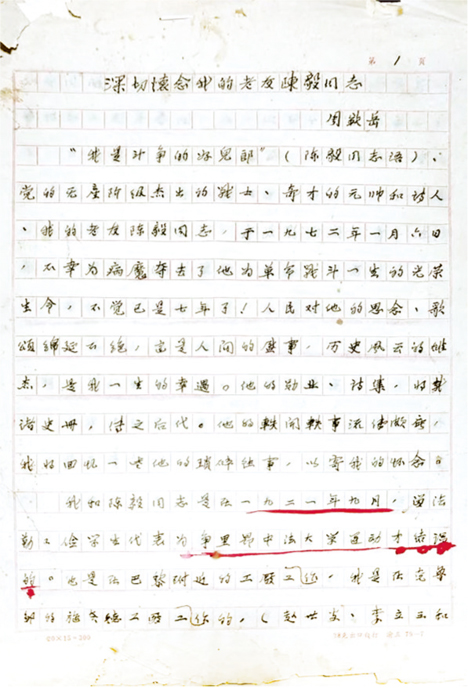 第 1 頁
深切懷念我的老友陳毅同志
周欽岳
“我是斗争的好兒郎”(陈毅同志语)、
党的无産阶级杰出的战士、奇才的元帅和诗人
、我的老友陈毅同志,于一九七二年一月六日
,不幸为病魔夺去了他为革命战斗一生的光荣
生命,不觉已是七年了!人民对他的思念、歌
頌綿延不绝,這是人间的盛事,历史风云的
杰,是我一生的幸遇。他的勋业、诗集,将
诸史册,传之后代。他的軼闻軼事流传
我将回忆一些他的瑣碎往事,以寄我的怀念。
我和陈毅同志是在一九二一年九月,留法
勤工俭学生代表为争里昂中法大学運动才结识
的。他是在巴黎附近的工廠工作,我是在克魯
邨的施奈德工廠工作的,(赵世炎、李立三和
20×15=300